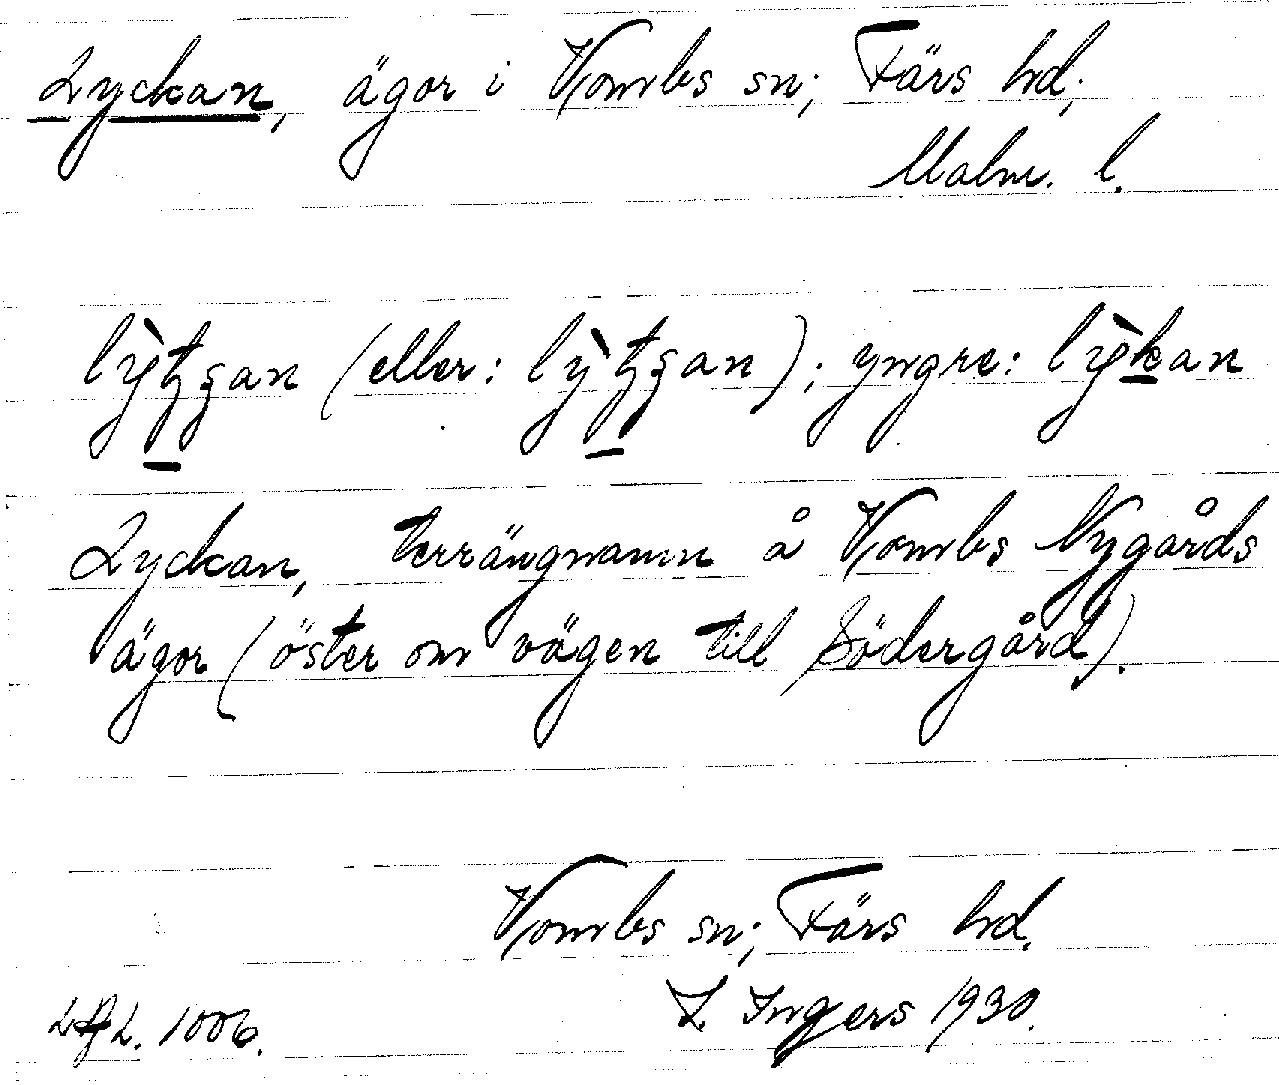 Lyckan, ägor i Vombs sn; Färs hd;
Malm. l.
lỳtʒan (eller: lỳtʒan); yngre: lỳkan
Lyckan, terrängnamn å Vombs Nygårds
ägor (öster om vägen till Södergård).
Vombs sn; Färs hd.
I. Ingers 1930.
LAL. 1006.